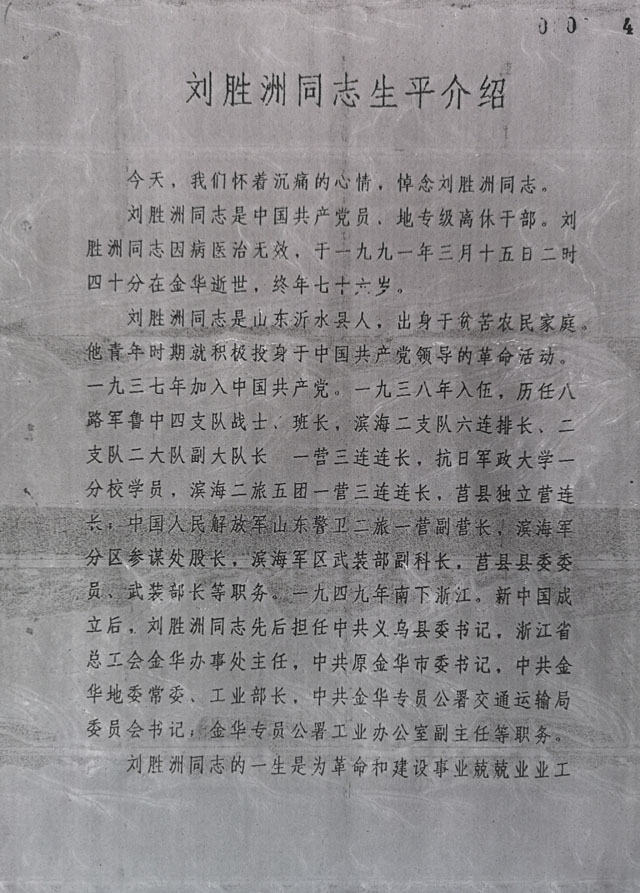 00 4
刘胜洲同志生平介绍
今天，我们怀着沉痛的心情，悼念刘胜洲同志。
刘胜洲同志是中国共产党员、地专级离休干部。刘
胜洲同志因病医治无效，于一九九一年三月十五日二时
四十分在金华逝世，终年七十六岁。
刘胜洲同志是山东沂水县人，出身于贫苦农民家庭。
他青年时期就积极投身于中国共产党领导的革命活动。
一九三七年加入中国共产党。一九三八年入伍，历任八
路军鲁中四支队战士、班长，滨海二支队六连排长、二
支队二大队副大队长 一营三连连长，抗日军政大学一
分校学员，滨海二旅五团一营三连连长，莒县独立营连
长；中国人民解放军山东警卫二旅一营副营长，滨海军
分区参谋处股长，滨海军区武装部副科长，莒县县委委
员、武装部长等职务。一九四九年南下浙江。新中国成
立后，刘胜洲同志先后担任中共义乌县委书记，浙江省
总工会金华办事处主任，中共原金华市委书记，中共金
华地委常委、工业部长，中共金华专员公署交通运输局
委员会书记；金华专员公署工业办公室副主任等职务。
刘胜洲同志的一生是为革命和建设事业兢兢业业工